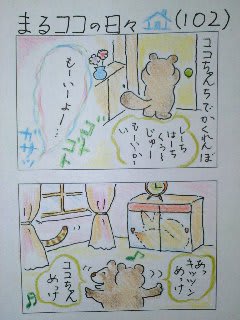 まるココの日々 (102)
ココちゃんちでかくれんぼ
しーち
はーち
くぅー
じゅー
もーいーかーい
もーいーよー…
カサッ
あっ
キッツン
めっけ
ココちゃん
めっけ